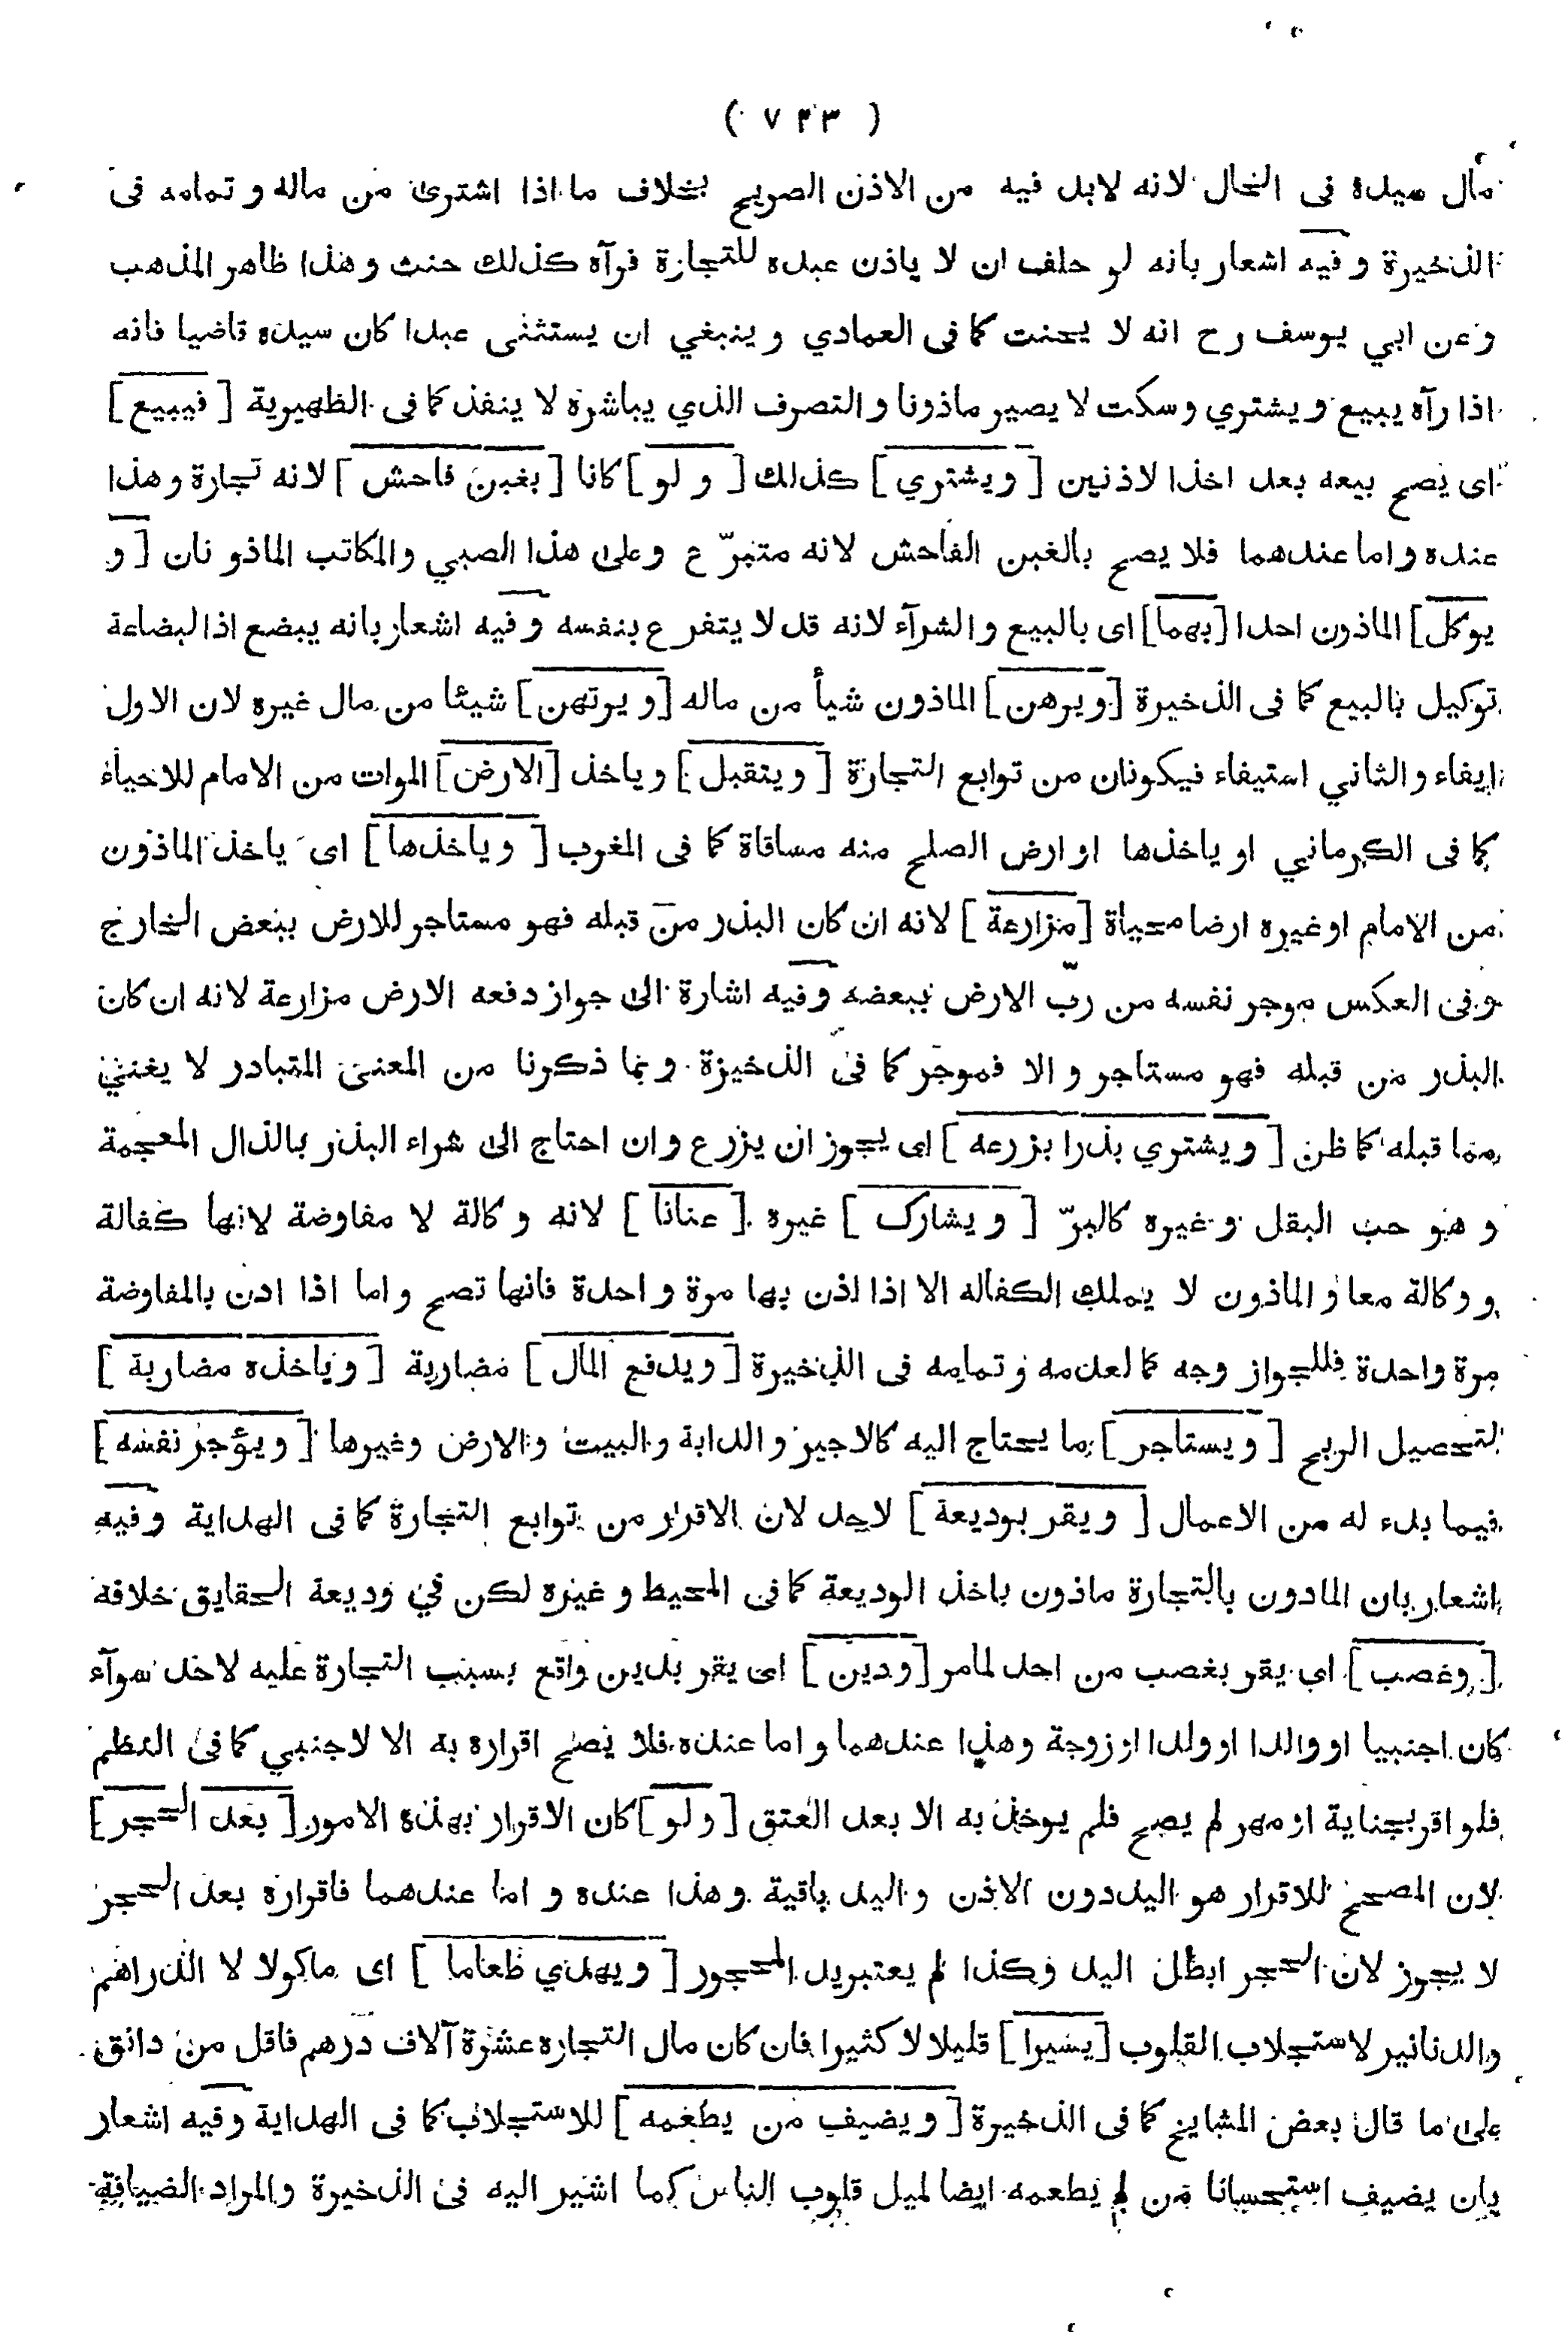 ( ٧٣٣ )
مال سيده فى الحال لانه لابد فيه من الاذن الصريح بخلاف ما اذا اشترى من ماله و تمامه فى
الذخيرة و فيه اشعار بانه لو حلف ان لا ياذن عبده للتجارة فرآه كذلك حنث و هذا ظاهر المذهب
و عن ابي يوسف رح انه لا يحنث كما فى العمادي و ينبغي ان يستثنى عبدا كان سيده قاضيا فانه
اذا رآه يبيع و يشتري و سكت لا يصير ماذونا و التصرف الذي يباشره لا ينفذ كما فى الظهيرية [ فيبيع ]
اى يصح بيعه بعد اخذا لاذنين [ ويشتري ] كذلك [ و لو ] كانا [ بغبن فاحش ] لانه تجارة و هذا
عنده و اما عندهما فلا يصح بالغبن الفاحش لانه متبرّ ع و على هذا الصبي والمكاتب الماذو نان [ و
يوكل ] الماذون احدا [ بهما ] اى بالبيع و الشرآء لانه قد لا يتفر ع بنفسه و فيه اشعار بانه يبضع اذا لبضاعة
توكيل بالبيع كما فى الذخيرة [ و يرهن ] الماذون شيأ من ماله [ و يرتهن ] شيئا من مال غيره لان الاول
ايفاء و الثاني استيفاء فيكونان من توابع التجارة [ و يتقبل ] و ياخذ [ الارض ] الموات من الامام للاحياء
كما فى الكرماني او ياخذها او ارض الصلح منه مساقاة كما فى المغرب [ و ياخذها ] اى ياخذ الماذون
من الامام اوغيره ارضا محياة [ مزارعة ] لانه ان كان البذر من قبله فهو مستاجر للارض ببعض الخارج
و فى العكس موجر نفسه من ربّ الارض ببعضه و فيه اشارة الى جواز دفعه الارض مزارعة لانه ان كان
البذر من قبله فهو مستاجر و الا فموجر كما فى الذخيرة و بما ذكرنا من المعنى المتبادر لا يغني
مما قبله كما ظن [ و يشتري بذرا يزرعه ] اى يجوز ان يزرع و ان احتاج الى شراء البذر بالذال المعجمة
و هو حب البقل و غيره كالبرّ [ و يشارك ] غيره [ عنانا ] لانه و كالة لا مفاوضة لانها كفالة
و وكالة معا و الماذون لا يملك الكفاله الا اذا اذن بها مرة و احدة فانها تصح و اما اذا ادن بالمفاوضة
مرة واحدة فللجواز وجه كما لعدمه و تمامه فى الذخيرة [ ويدفع المال ] مضاربة [ و ياخذه مضاربة ]
لتحصيل الربح [ و يستاجر ] ما يحتاج اليه كالاجير و الدابة و البيت و الارض وغيرها [ و يؤجر نفسه ]
فيما بدء له من الاعمال [ و يقر بوديعة ] لاحد لان الاقرار من توابع التجارة كما فى الهداية و فيه
اشعار بان المادون بالتجارة ماذون باخذ الوديعة كما فى المحيط و غيره لكن في وديعة الحقايق خلافه
[ وغصب ] اى يقر بغصب من احد لمامر [ ودين ] اى يقر بدين واقع بسبب التجارة عليه لاحد سوآء
كان اجنبيا او والدا او ولدا او زوجة وهذا عندهما و اما عنده فلا يصح اقراره به الا لاجنبي كما فى النظم
فلو اقر بجناية او مهر لم يصح فلم يوخذ به الا بعد العتق [ و لو ] كان الاقرار بهذه الامور [ بعد الحجر ]
لان المصحح للاقرار هو اليد دون الاذن و اليد باقية و هذا عنده و اما عندهما فاقراره بعد الحجر
لا يجوز لان الحجر ابطل اليد و كذا لم يعتبر يد المحجور [ و يهدي طعاما ] اى ماكولا لا الدراهم
والدنانير لاستجلاب القلوب [ يسيرا ] قليلا لا كثيرا فان كان مال التجاره عشرة آلاف درهم فاقل من دانق
على ما قال بعض المشايخ كما فى الذخيرة [ و يضيف من يطعمه ] للاستجلاب كما فى الهداية و فيه اشعار
بان يضيف استحسانا من لم يطعمه ايضا لميل قلوب الناس كما اشير اليه فى الذخيرة و المراد الضيافة